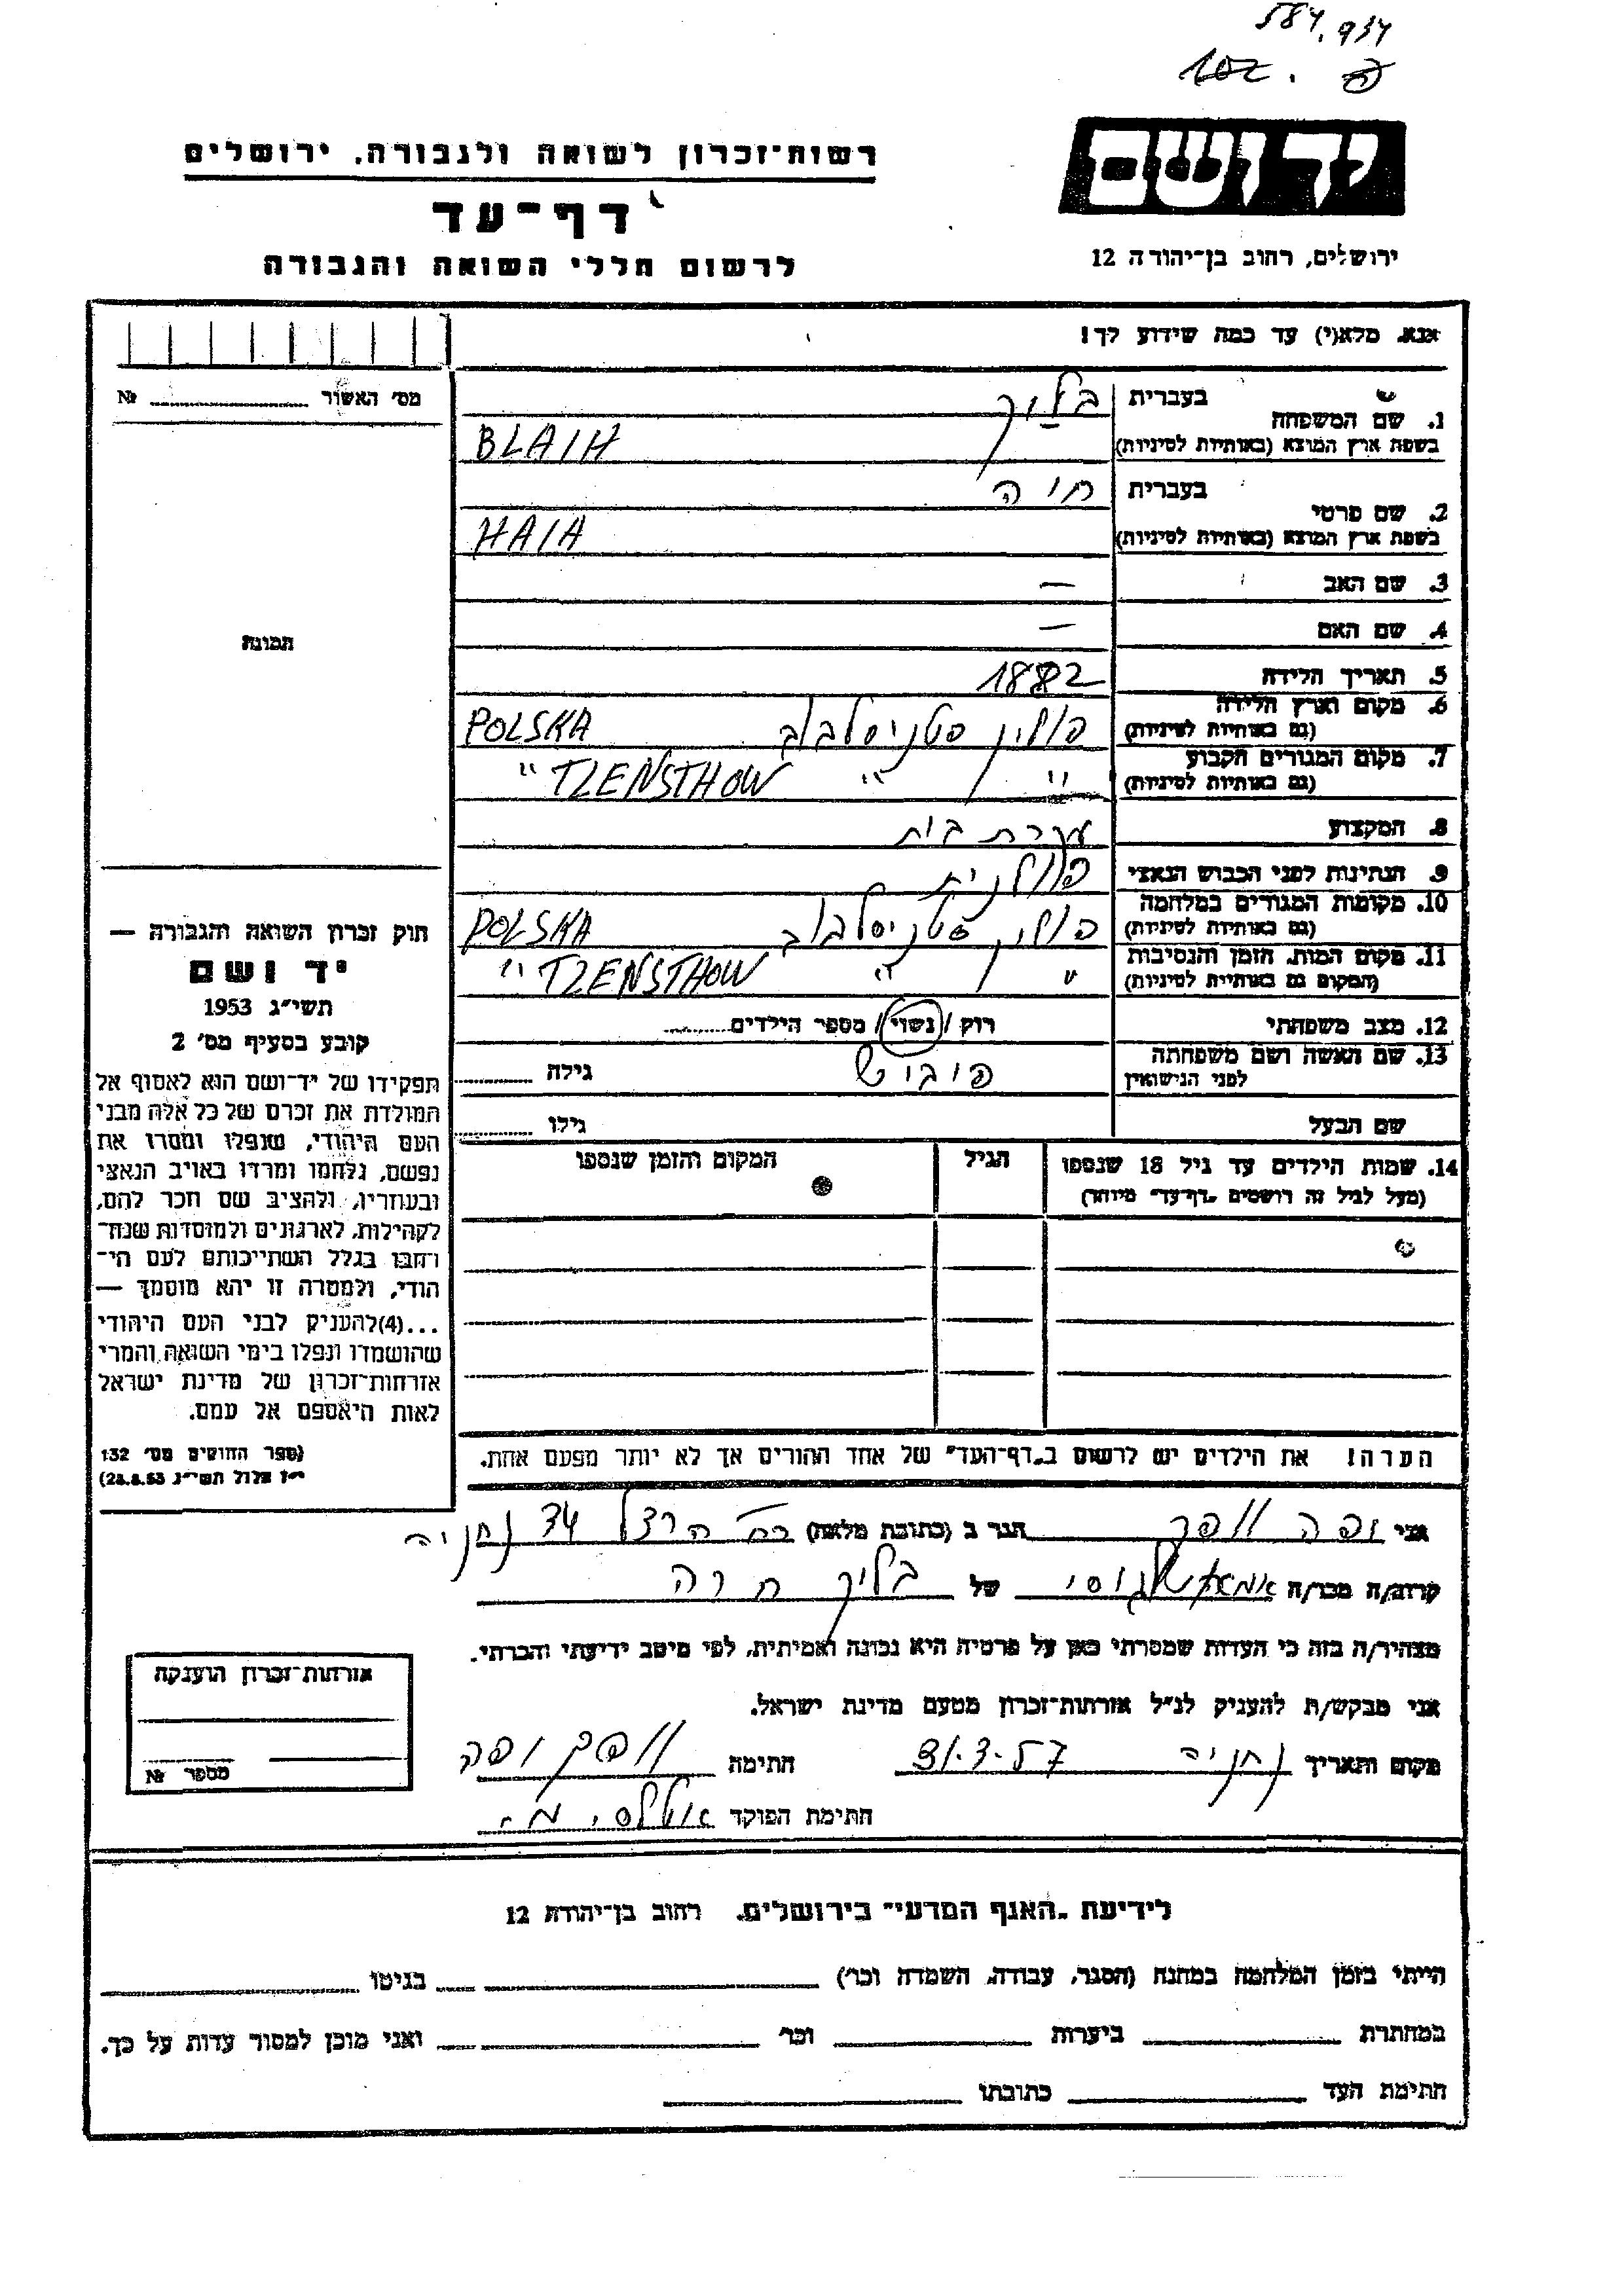 584,934
102.
יד ושם
רשות־זכרון לשואה ולגבורה, ירושלים
דף־עד
לרשום חללי השואה והגבורה
ירושלים, רחוב בן־יהודה 12
אנא, מלא(י) עד כמה שידוע לך!
מס׳ האשור № 
1. שם המשפחה
בעברית
בשפת ארץ המוצא (באותיות לטיניות)
BLAIH
2. שם פרטי
בעברית חיה
בשפת ארץ המוצא (באותיות לטיניות)
HAIA
3. שם האב —
4. שם האם —
תמונה
5. תאריך הלידה 1882
6. מקום וארץ הלידה
(גם באותיות לטיניות) פולין POLSKA
7. מקום המגורים הקבוע
(גם באותיות לטיניות) " " " TZENSTHOW
8. המקצוע עקרת בית
9. הנתינות לפני הכבוש הנאצי פולנית
10. מקומות המגורים במלחמה
(גם באותיות לטיניות) פולין POLSKA
11. מקום המות, הזמן והנסיבות
(המקום גם באותיות לטיניות) " " " TZENSTHOW
12. מצב משפחתי רוק / נשוי / מספר הילדים
13. שם האשה ושם משפחתה
לפני הנישואין
גילה
שם הבעל גילו
14. שמות הילדים עד גיל 18 שנספו
(מעל לגיל זה רושמים „דף־עד״ מיוחד)
הגיל
המקום והזמן שנספו
חוק זכרון השואה והגבורה —
יד ושם
תשי״ג 1953
קובע בסעיף מס׳ 2
תפקידו של יד־ושם הוא לאסוף אל
המולדת את זכרם של כל אלה מבני
העם היהודי, שנפלו ומסרו את
נפשם, נלחמו ומרדו באויב הנאצי
ובעוזריו, ולהציב שם וזכר להם,
לקהילות, לארגונים ולמוסדות שנח־
רחבו בגלל השתייכותם לעם הי־
הודי, ולמטרה זו יהא מוסמך —
...(4)להעניק לבני העם היהודי
שהושמדו ונפלו בימי השואה והמרי
אזרחות־זכרון של מדינת ישראל
לאות היאספם אל עמם.
(ספר החוקים מס׳ 132
י״ז אלול תשי״ג 28.8.53)
הערה! את הילדים יש לרשום ב„דף־העד״ של אחד ההורים אך לא יותר מפעם אחת.
אני יפה הגר ב (כתובת מלאה) הרצל 34 נתניה
קרוב/ה מכר/ה של בליך חיה
מצהיר/ה בזה כי העדות שמסרתי כאן על פרטיה היא נכונה ואמיתית, לפי מיטב ידיעתי והכרתי.
אני מבקש/ת להעניק לנ״ל אזרחות־זכרון מטעם מדינת ישראל.
מקום ותאריך נתניה 31.3.57 חתימה יפה
חתימת הפוקד
אזרחות־זכרון הוענקה
מספר №
לידיעת „האגף המדעי״ בירושלים, רחוב בן־יהודה 12
הייתי בזמן המלחמה במחנה (הסגר, עבודה, השמדה וכו׳) בגיטו
במחתרת ביערות וכו׳ ואני מוכן למסור עדות על כך.
חתימת העד כתובתו